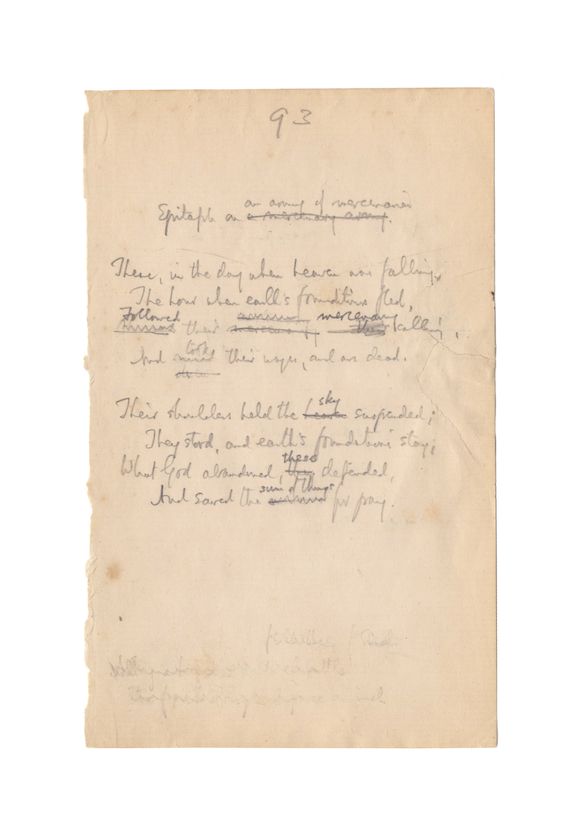 93
an army of mercenaries
Epitaph on a mercenary army.
These, in the day when heaven was falling,
The hour when earth's foundations fled,
Followed mercenary
their calling,
took
And their wages, and are dead.
sky
Their shoulders held the heaven suspended;
They stood, and earth's foundations stay;
these
What God abandoned, they defended,
sum of things
And saved the for pay.